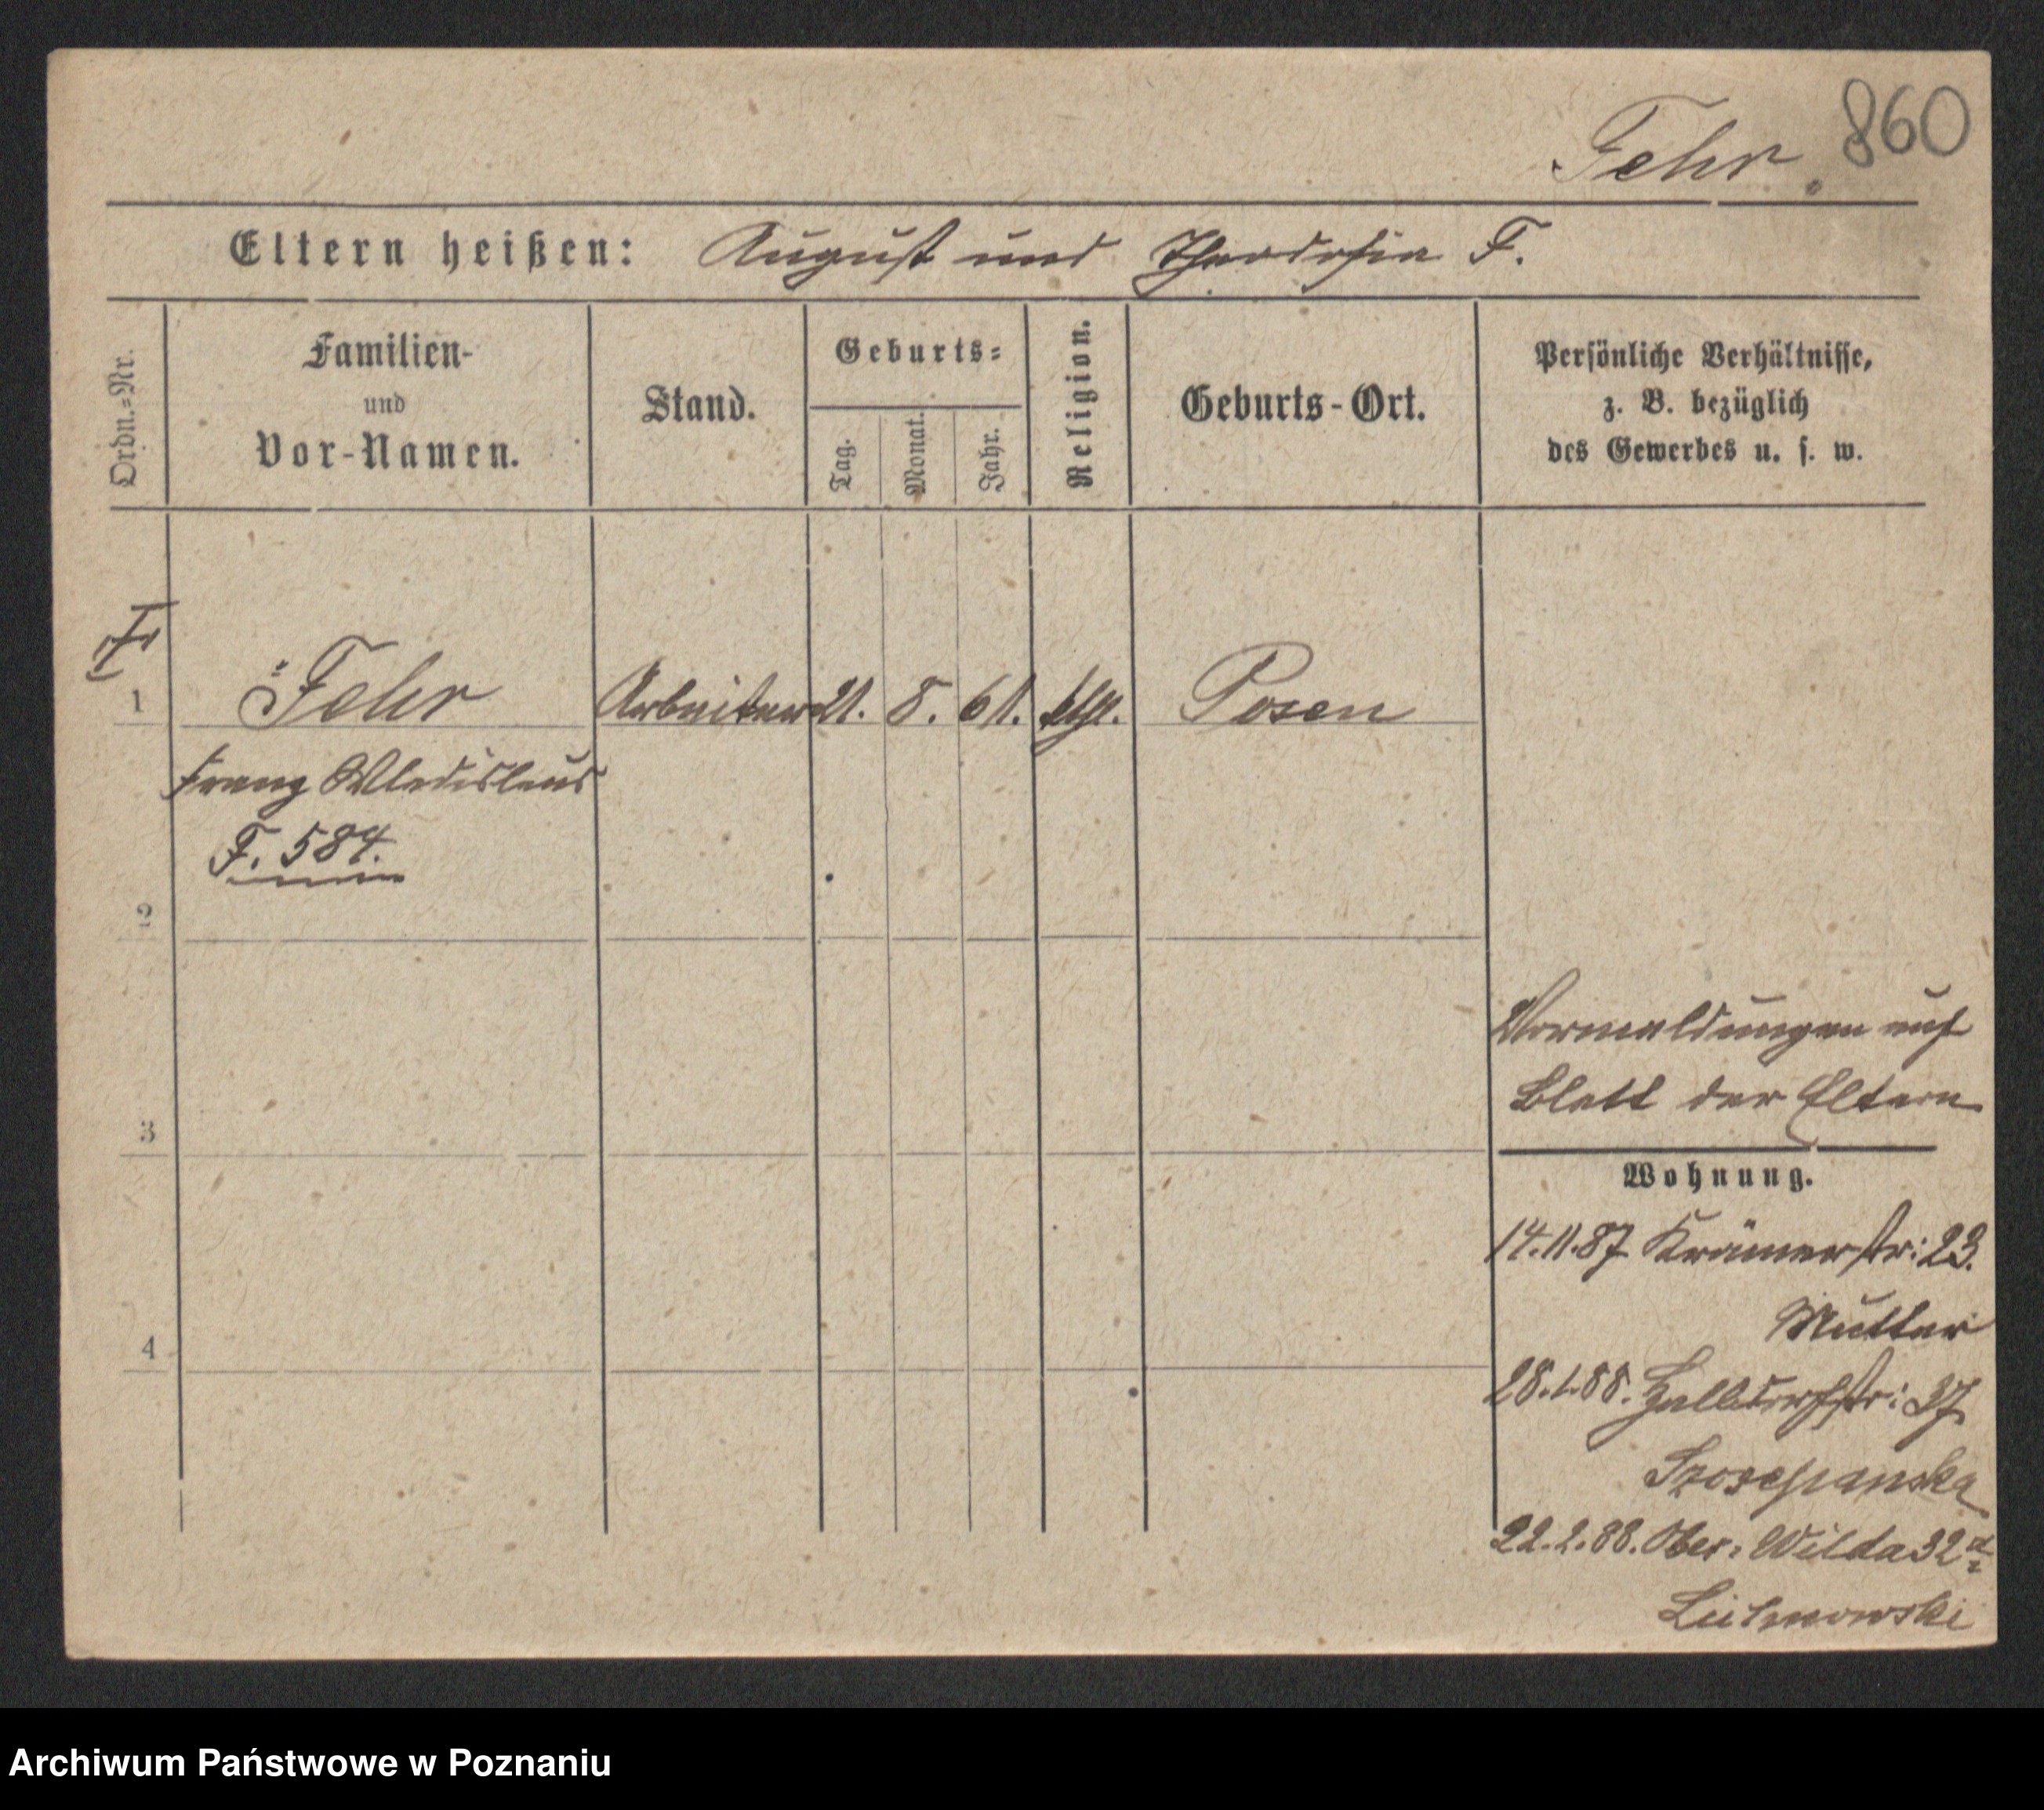 860
Fehr.
Eltern heißen: August und Theodosia F.
Ordn.=Nr.
Familien-
und
Vor-Namen.
Stand.
Geburts=
Tag.
Monat.
Jahr.
Religion.
Geburts-Ort.
Persönliche Verhältnisse,
z. B. bezüglich
des Gewerbes u. s. w.
1 Fehr Arbeiter 21. 8. 61. kth. Posen
Franz Wladislaus
F. 584.
2
Vormeldungen auf
Blatt der Eltern
3
Wohnung.
14.11.87 Krämerstr: 23.
Mutter
4
28.1.88. Halldorfstr: 37
22.2.88. Ober-Wilda 32
Archiwum Państwowe w Poznaniu